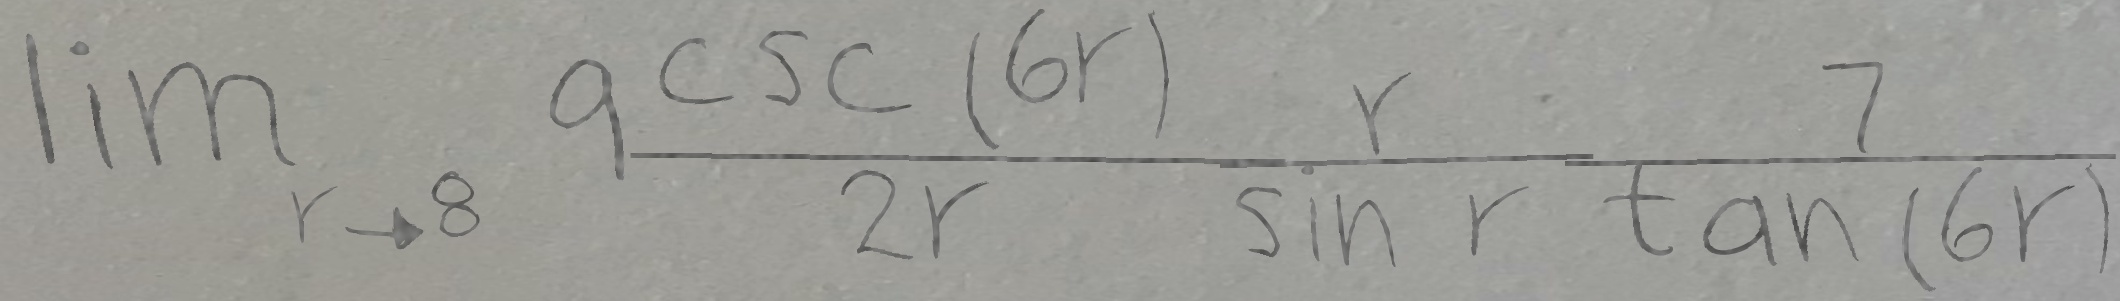 \lim_{r \to 8} 9 \frac{\csc(6r)}{2r} \frac{r}{\sin r} \frac{7}{\tan(6r)}